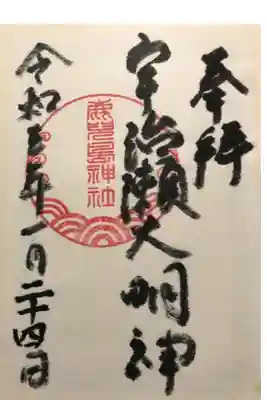 奉拝
宇治瀬大明神
鹿児島神社
令和五年一月二十四日